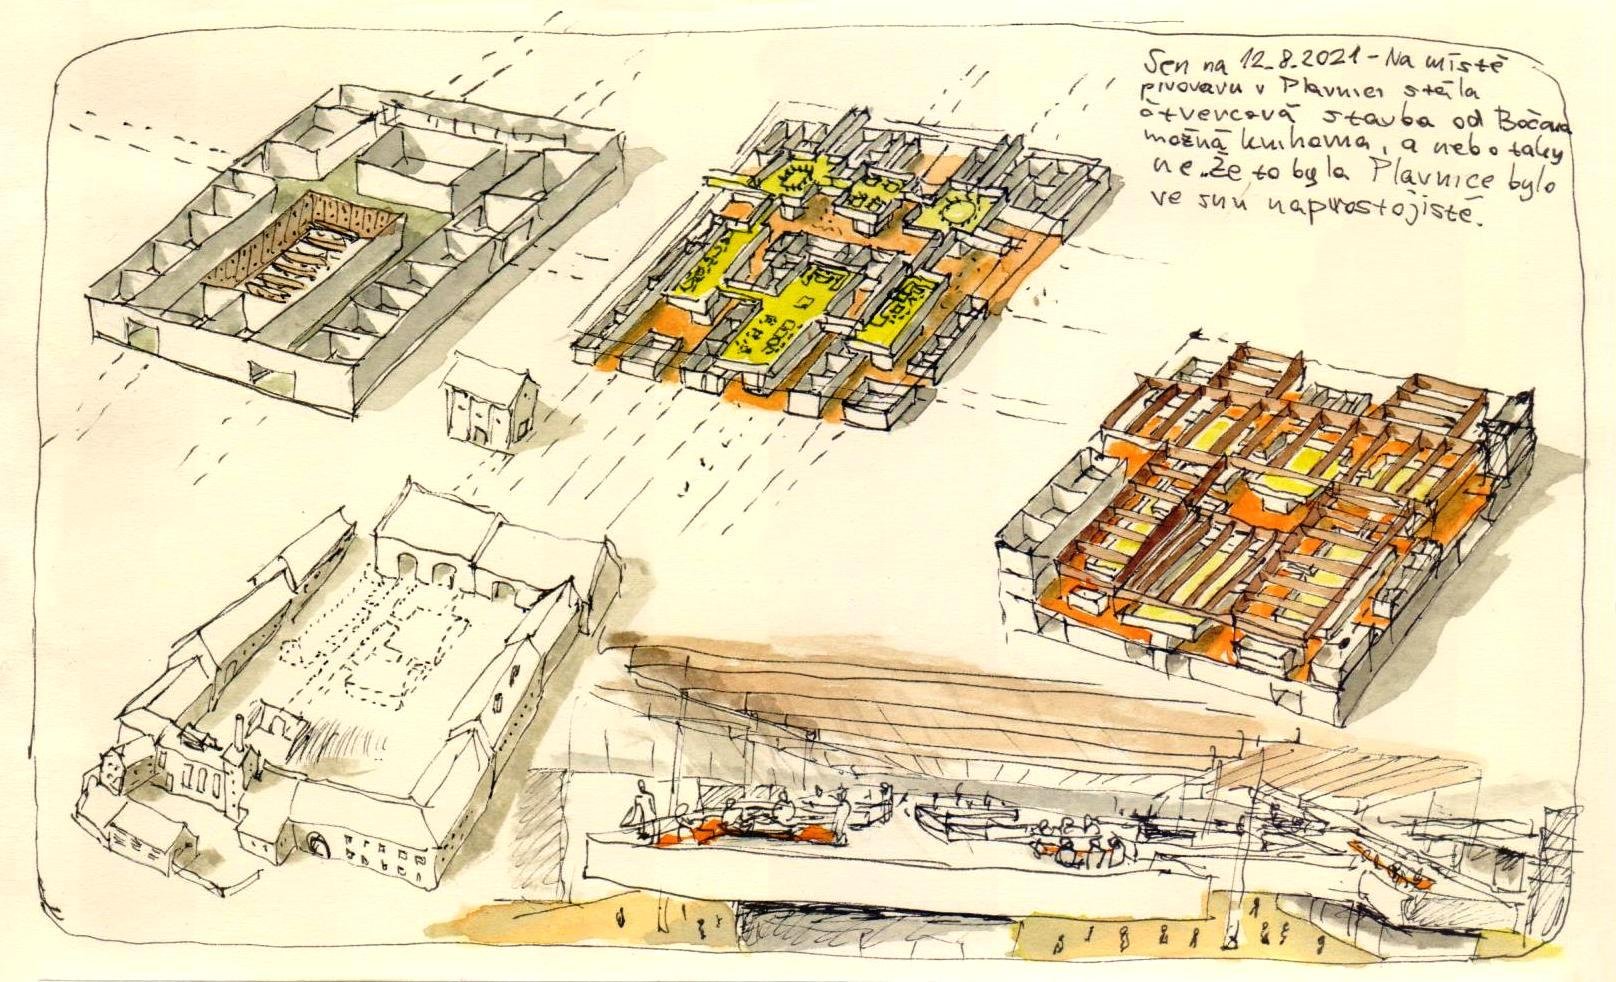 Sen na 12.8.2021 - Na místě
pivovaru v Plavnici stála
čtvercová stavba od Bočana
možná knihovna, a nebo taky
ne. Že to byla Plavnice bylo
ve snu naprostojisté.